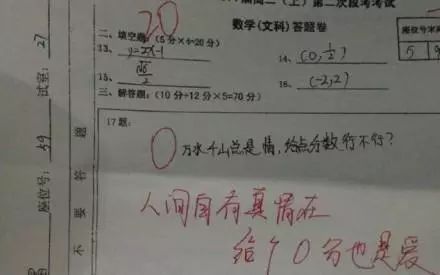 高二（上）第二次段考考试
数学(文科)答题卷
20
二、填空题:(5分×4=20分)
13、y=2x-1
14、(0,1/2)
15、√6/2
16、(-2,2)
三、解答题:(10分+12分×5=70分)
17题:
0
万水千山总是情,给点分数行不行?
人间自有真情在
给个0分也是爱
座位号
试室: 27
座位号: 59
不要答题